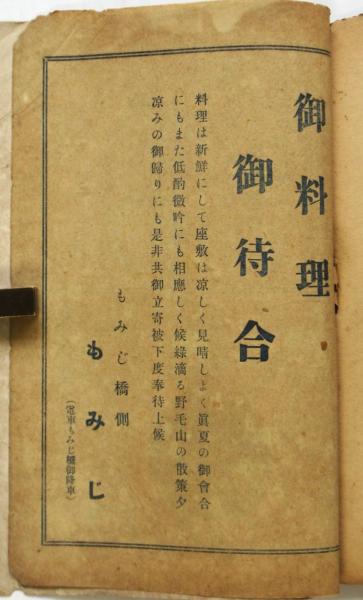 御料理
御待合
料理は新鮮にして座敷は凉しく見晴しよく眞夏の御會合
にもまた低酌微吟にも相應しく候綠滴る野毛山の散策夕
凉みの御歸りにも是非共御立寄被下度奉待上候
もみじ橋側
もみじ
（電車もみじ橋御降車）